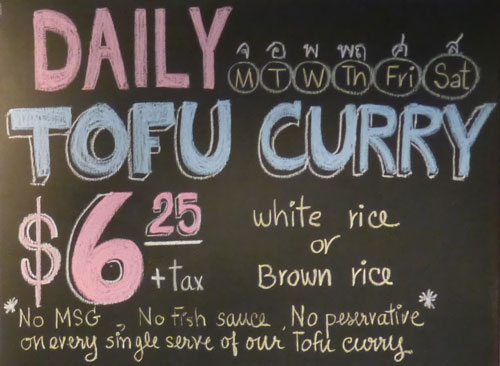 DAILY
จ อ พ พฤ ศ ส
M T W Th Fri Sat
TOFU CURRY
$6.25 + tax
white rice
or
Brown rice
*No MSG, No fish sauce, No peservative*
on every single serve of our Tofu curry